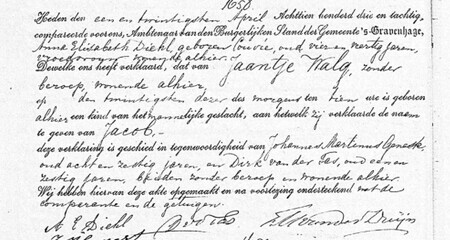 1650.
Heden den een en twintigsten April Achttien honderd drie en tachtig,
compareerde voor ons, Ambtenaar van den Burgerlijken Stand der Gemeente 's Gravenhage,
Anna Elisabeth Diehl, geboren Ouwe, oud vier en veertig jaren,
vroedvrouw, wonende alhier.
Dewelke ons heeft verklaard, dat van Jaantje Kalq, zonder
beroep, wonende alhier,
op den twintigsten dezer des morgens ten tien ure is geboren
alhier een kind van het mannelijke geslacht, aan hetwelk zij verklaarde de naam
te geven van Jacob.
deze verklaring is geschied in tegenwoordigheid van Johannes Martinus
oud acht en zestig jaren, en Dirk van der Eas, oud een en
zestig jaren, beiden zonder beroep en wonende alhier.
Wij hebben hiervan deze akte opgemaakt en na voorlezing onderteekend met de
comparante en de getuigen.
A. E. Diehl